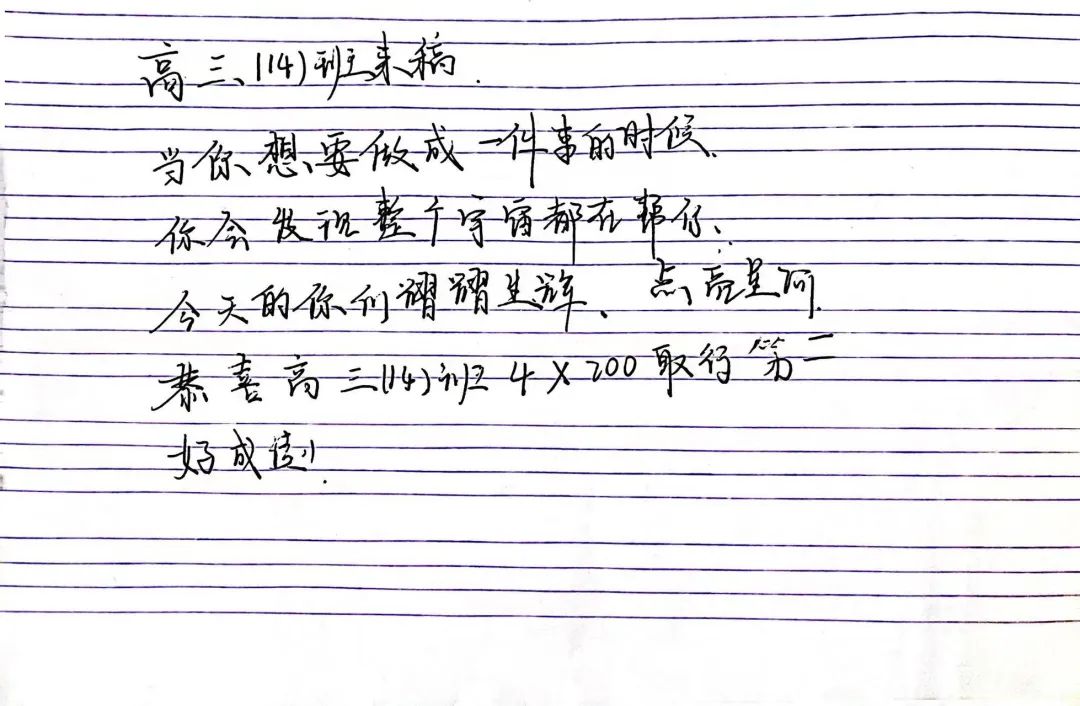 高三(14)班来稿.
当你想要做成一件事的时候.
你会发现整个宇宙都在帮你.
今天的你们熠熠生辉、点亮星河.
恭喜高三(14)班4×200取得第二
好成绩!